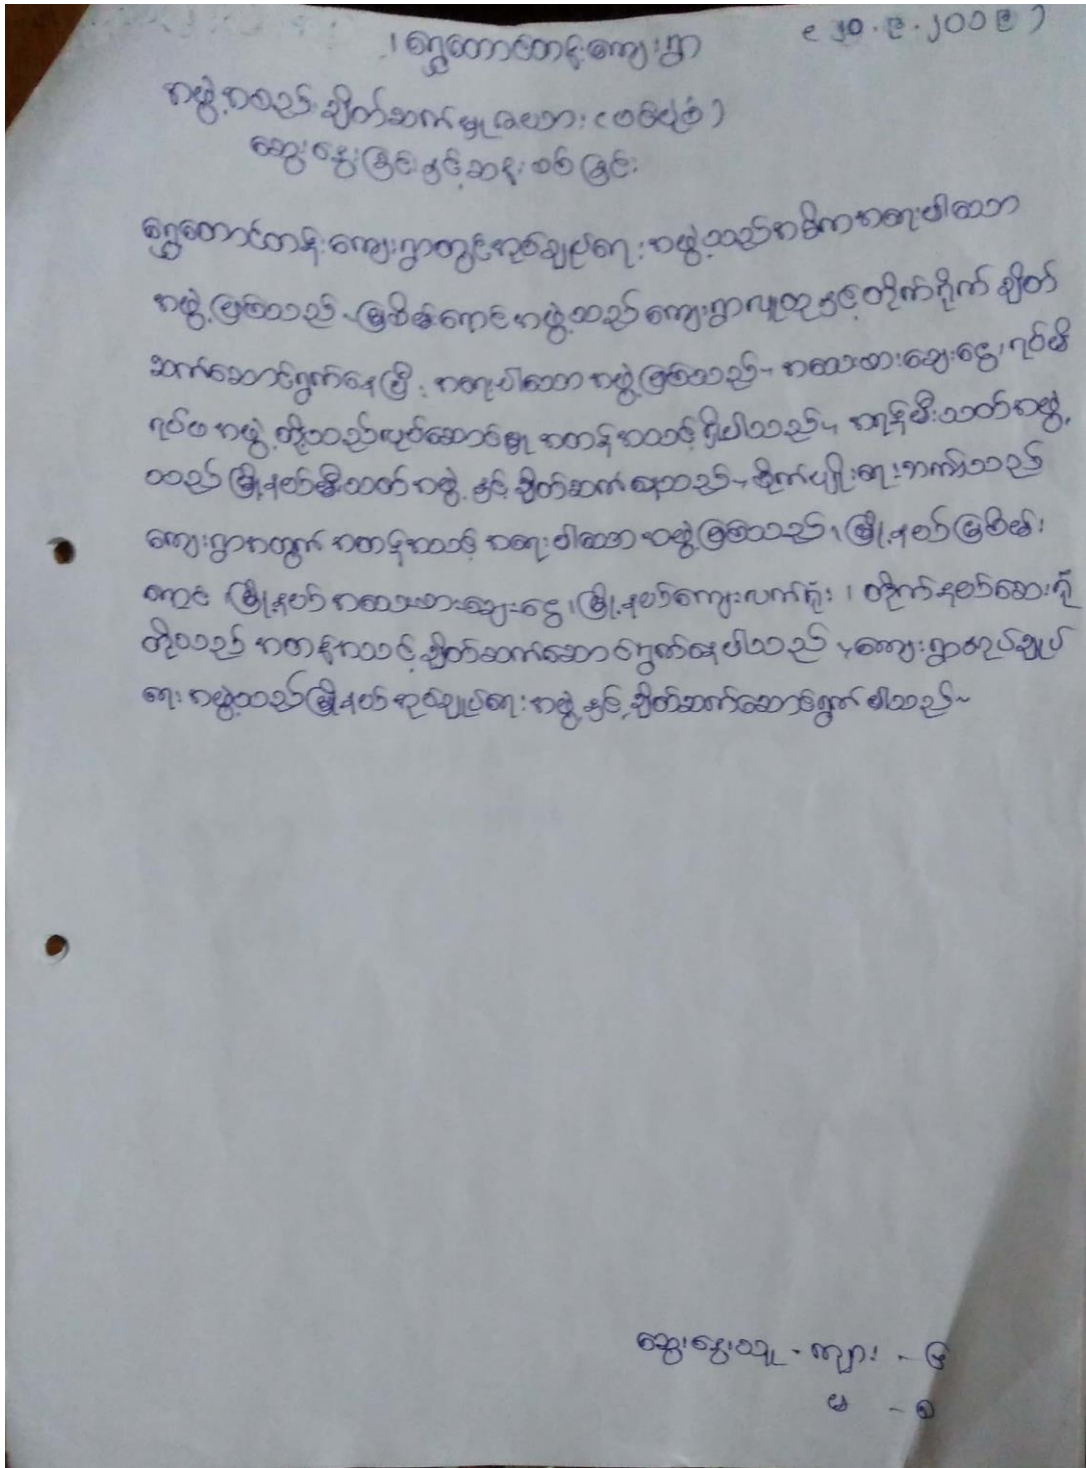 (၂၀.၉.၂၀၁၉)
ရွှေတောင်တန်းကျေးရွာ
အဖွဲ့အစည်းချိတ်ဆက်မှုဇယား(ဗစ်ပုံစံ)
ဆွေးနွေးခြင်းနှင့်ဆန်းစစ်ခြင်း
ရွှေတောင်တန်းကျေးရွာတွင်အုပ်ချုပ်ရေးအဖွဲ့သည်အဓိကအရေးပါသော
အဖွဲ့ဖြစ်သည်။မြစိမ်းရောင်အဖွဲ့သည်ကျေးရွာလူထုနှင့်တိုက်ရိုက်ချိတ်
ဆက်ဆောင်ရွက်နေပြီးအရေးပါသောအဖွဲ့ဖြစ်သည်။အသေးစားချေးငွေ၊ရပ်မိ
ရပ်ဖအဖွဲ့တို့သည်လုပ်ဆောင်မှုအတန်အသင့်ရှိပါသည်။အရန်မီးသတ်အဖွဲ့
သည်မြို့နယ်မီးသတ်အဖွဲ့နှင့်ချိတ်ဆက်သည်။စိုက်ပျိုးရေးဘဏ်သည်
ကျေးရွာအတွက်အတန်အသင့်အရေးပါသောအဖွဲ့ဖြစ်သည်၊မြို့နယ်မြစိမ်း
ရောင်မြို့နယ်အသေးစားချေးငွေ၊မြို့နယ်ကျေးလက်ဦး၊တိုက်နယ်ဆေးရုံ
တို့သည်အတန်အသင့်ချိတ်ဆက်ဆောင်ရွက်နေပါသည်။ကျေးရွာအုပ်ချုပ်
ရေးအဖွဲ့သည်မြို့နယ်အုပ်ချုပ်ရေးအဖွဲ့နှင့်ချိတ်ဆက်ဆောင်ရွက်ပါသည်~
ဆွေးနွေးသူ-ကျား-၆
မ-၈